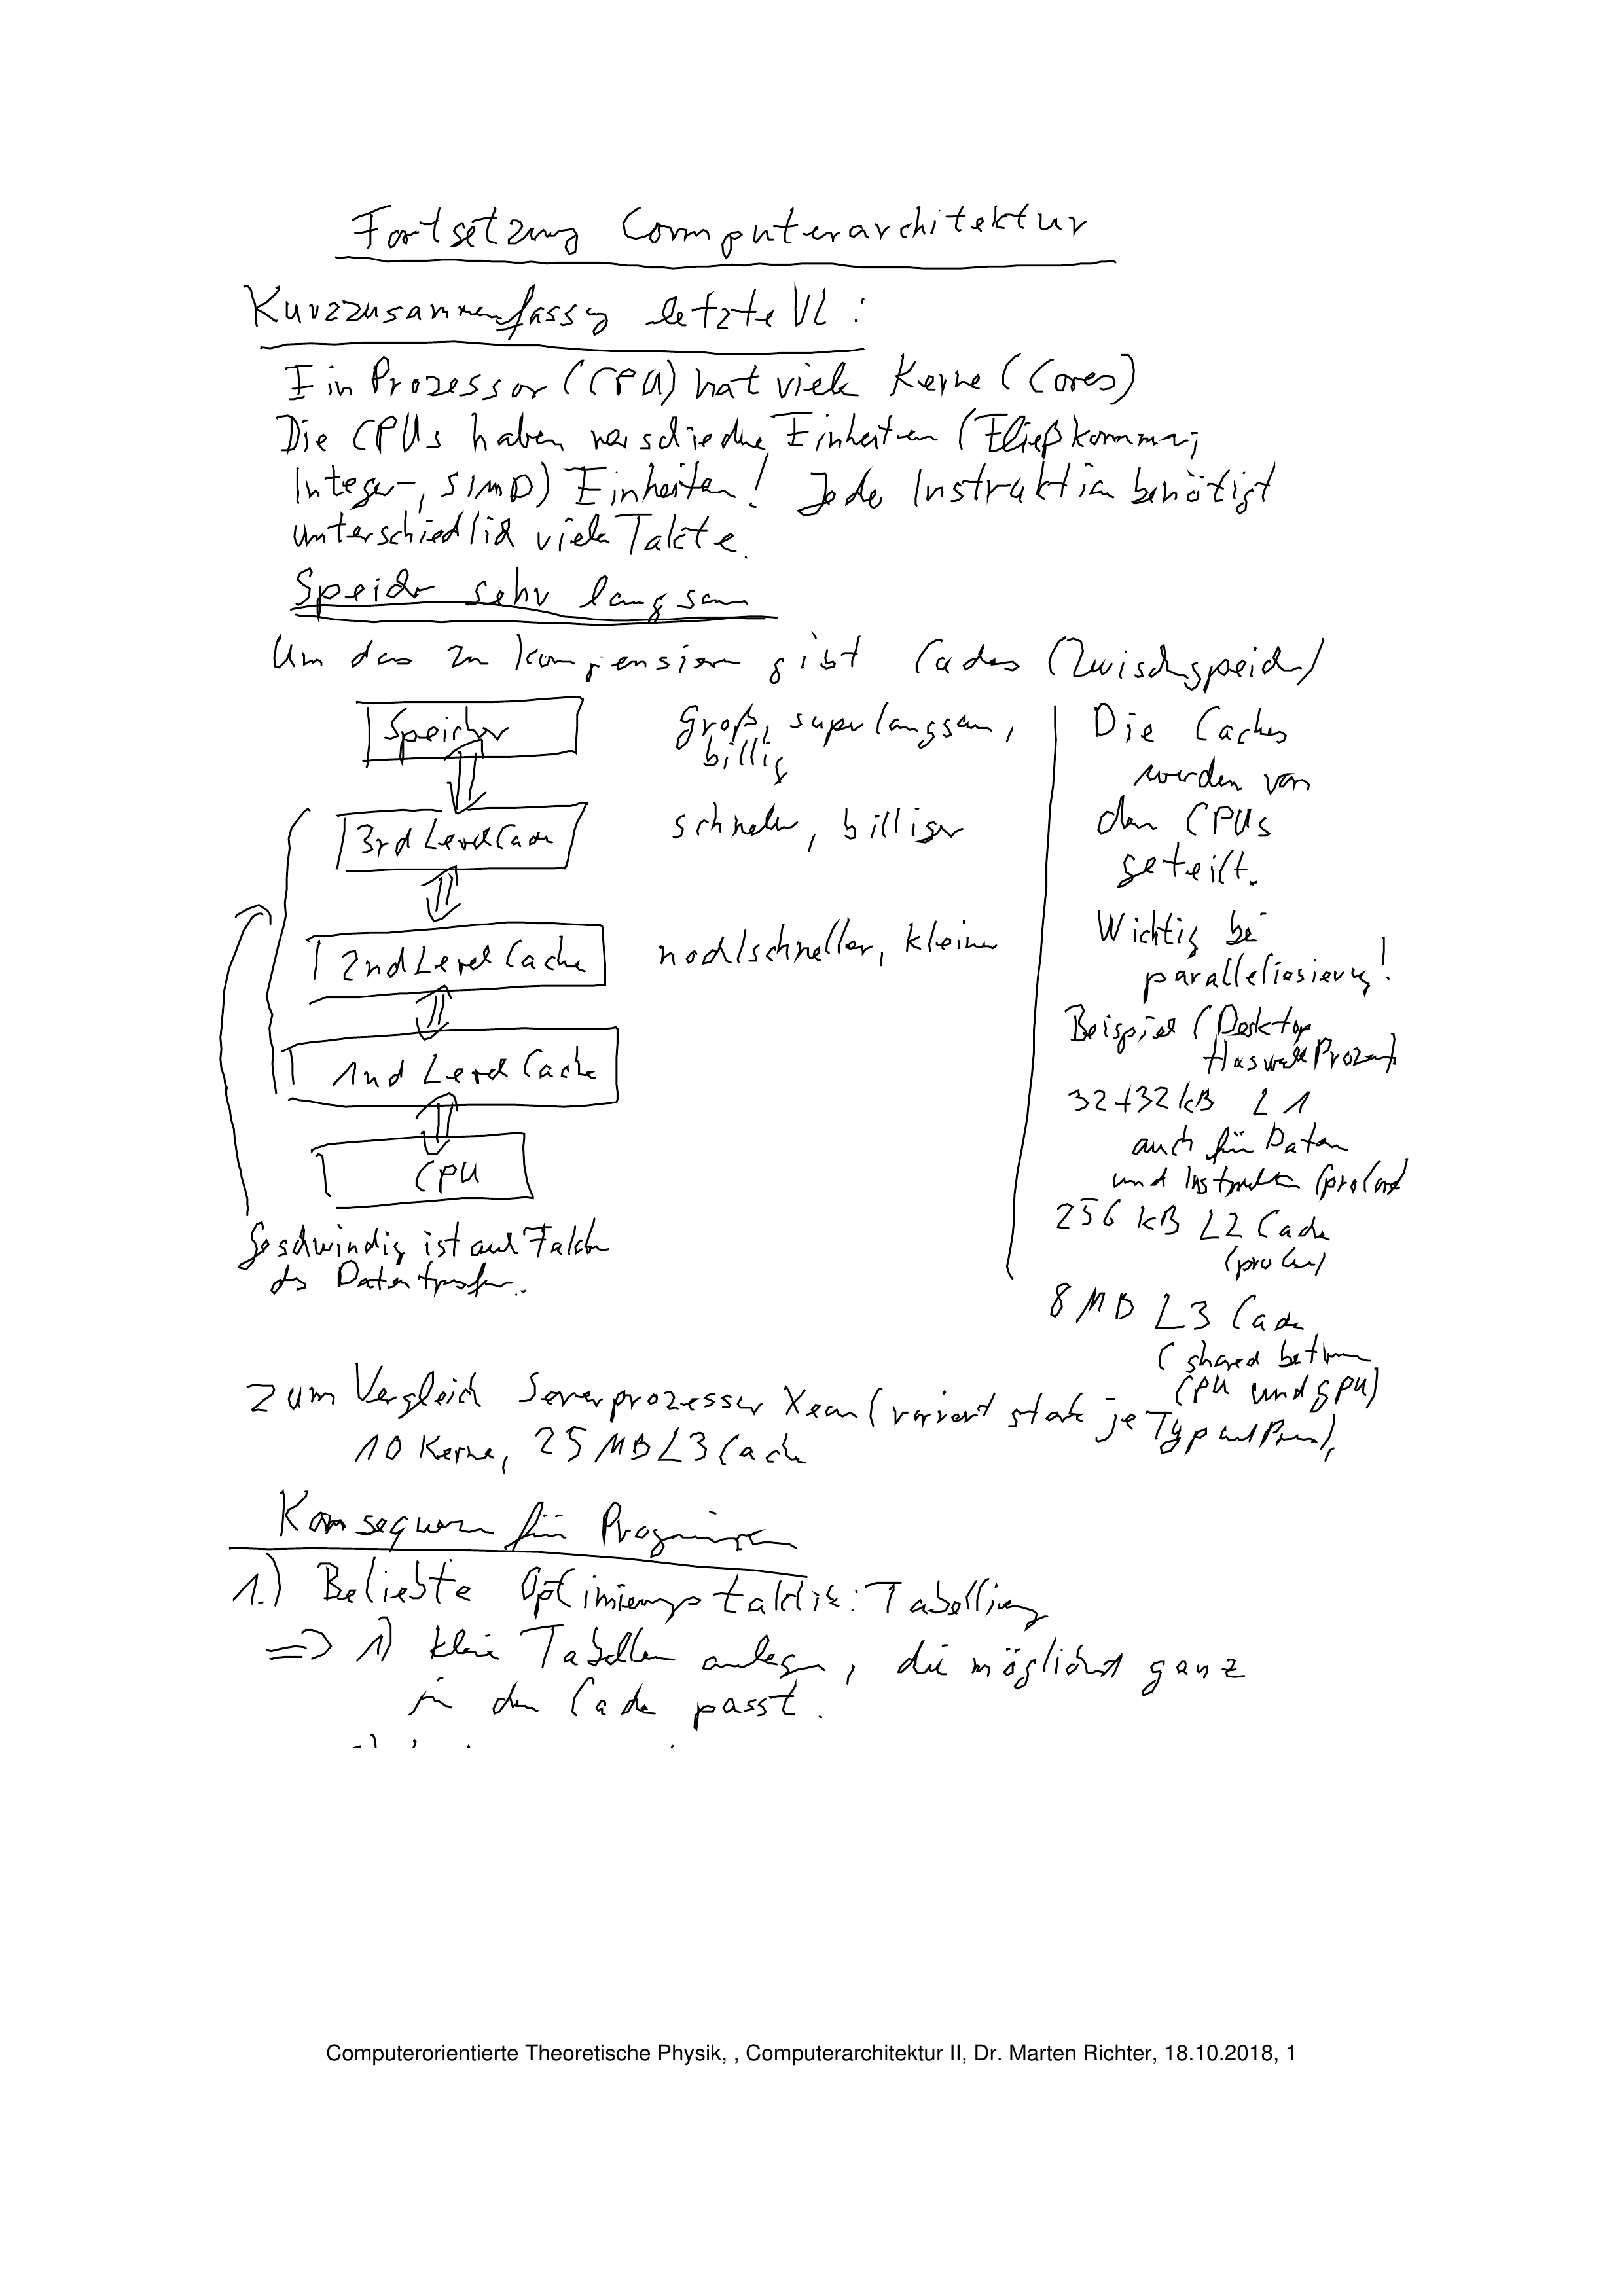 Fortsetzung Computerarchitektur
Kurzzusammenfassg letzte VL :
Ein Prozessor (CPU) hat viele Kerne (Cores)
Die CPUs haben verschiedne Einheiten (Fließkomma-,
Integer-, SIMD) Einheiten! Jede Instruktion benötigt
unterschiedlich viele Takte.
Speicher sehr langsam
Um das zu kompensieren gibt Caches (Zwischspeicher)
Speicher
groß, super langsam,
billig
3rd Level Cache
schneller, billiger
2nd Level Cache
noch schneller, kleiner
1nd Level Cache
CPU
Geschwindig ist auch Faktor
des Datentransfer.
Die Caches
werden von
den CPUs
geteilt.
Wichtig bei
parallelisierung!
Beispiel (Desktop
Haswell Prozess)
32+32 kB L1
auch für Daten
und Instruktion (pro Core)
256 kB L2 Cache
(pro Core)
8 MB L3 Cache
(shared between
CPU und GPU)
Zum Vergleich Serverprozessor Xeon (variiert stark je Typ und Preis),
10 Kerne, 25 MB L3 Cache
Konsequenz für Programmierer
1.) Beliebte Optimierungstaktik: Tabellierung
=> 1) kleine Tabellen anlegen, die möglichst ganz
in den Cache passt.
Computerorientierte Theoretische Physik, , Computerarchitektur II, Dr. Marten Richter, 18.10.2018, 1